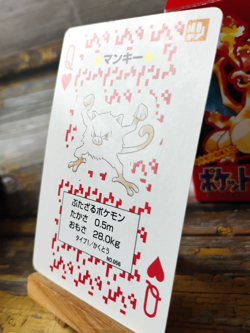 Q
マンキー
ぶたざるポケモン
たかさ 0.5m
おもさ 28.0kg
タイプ1/かくとう
NO.056
Q
ポケット